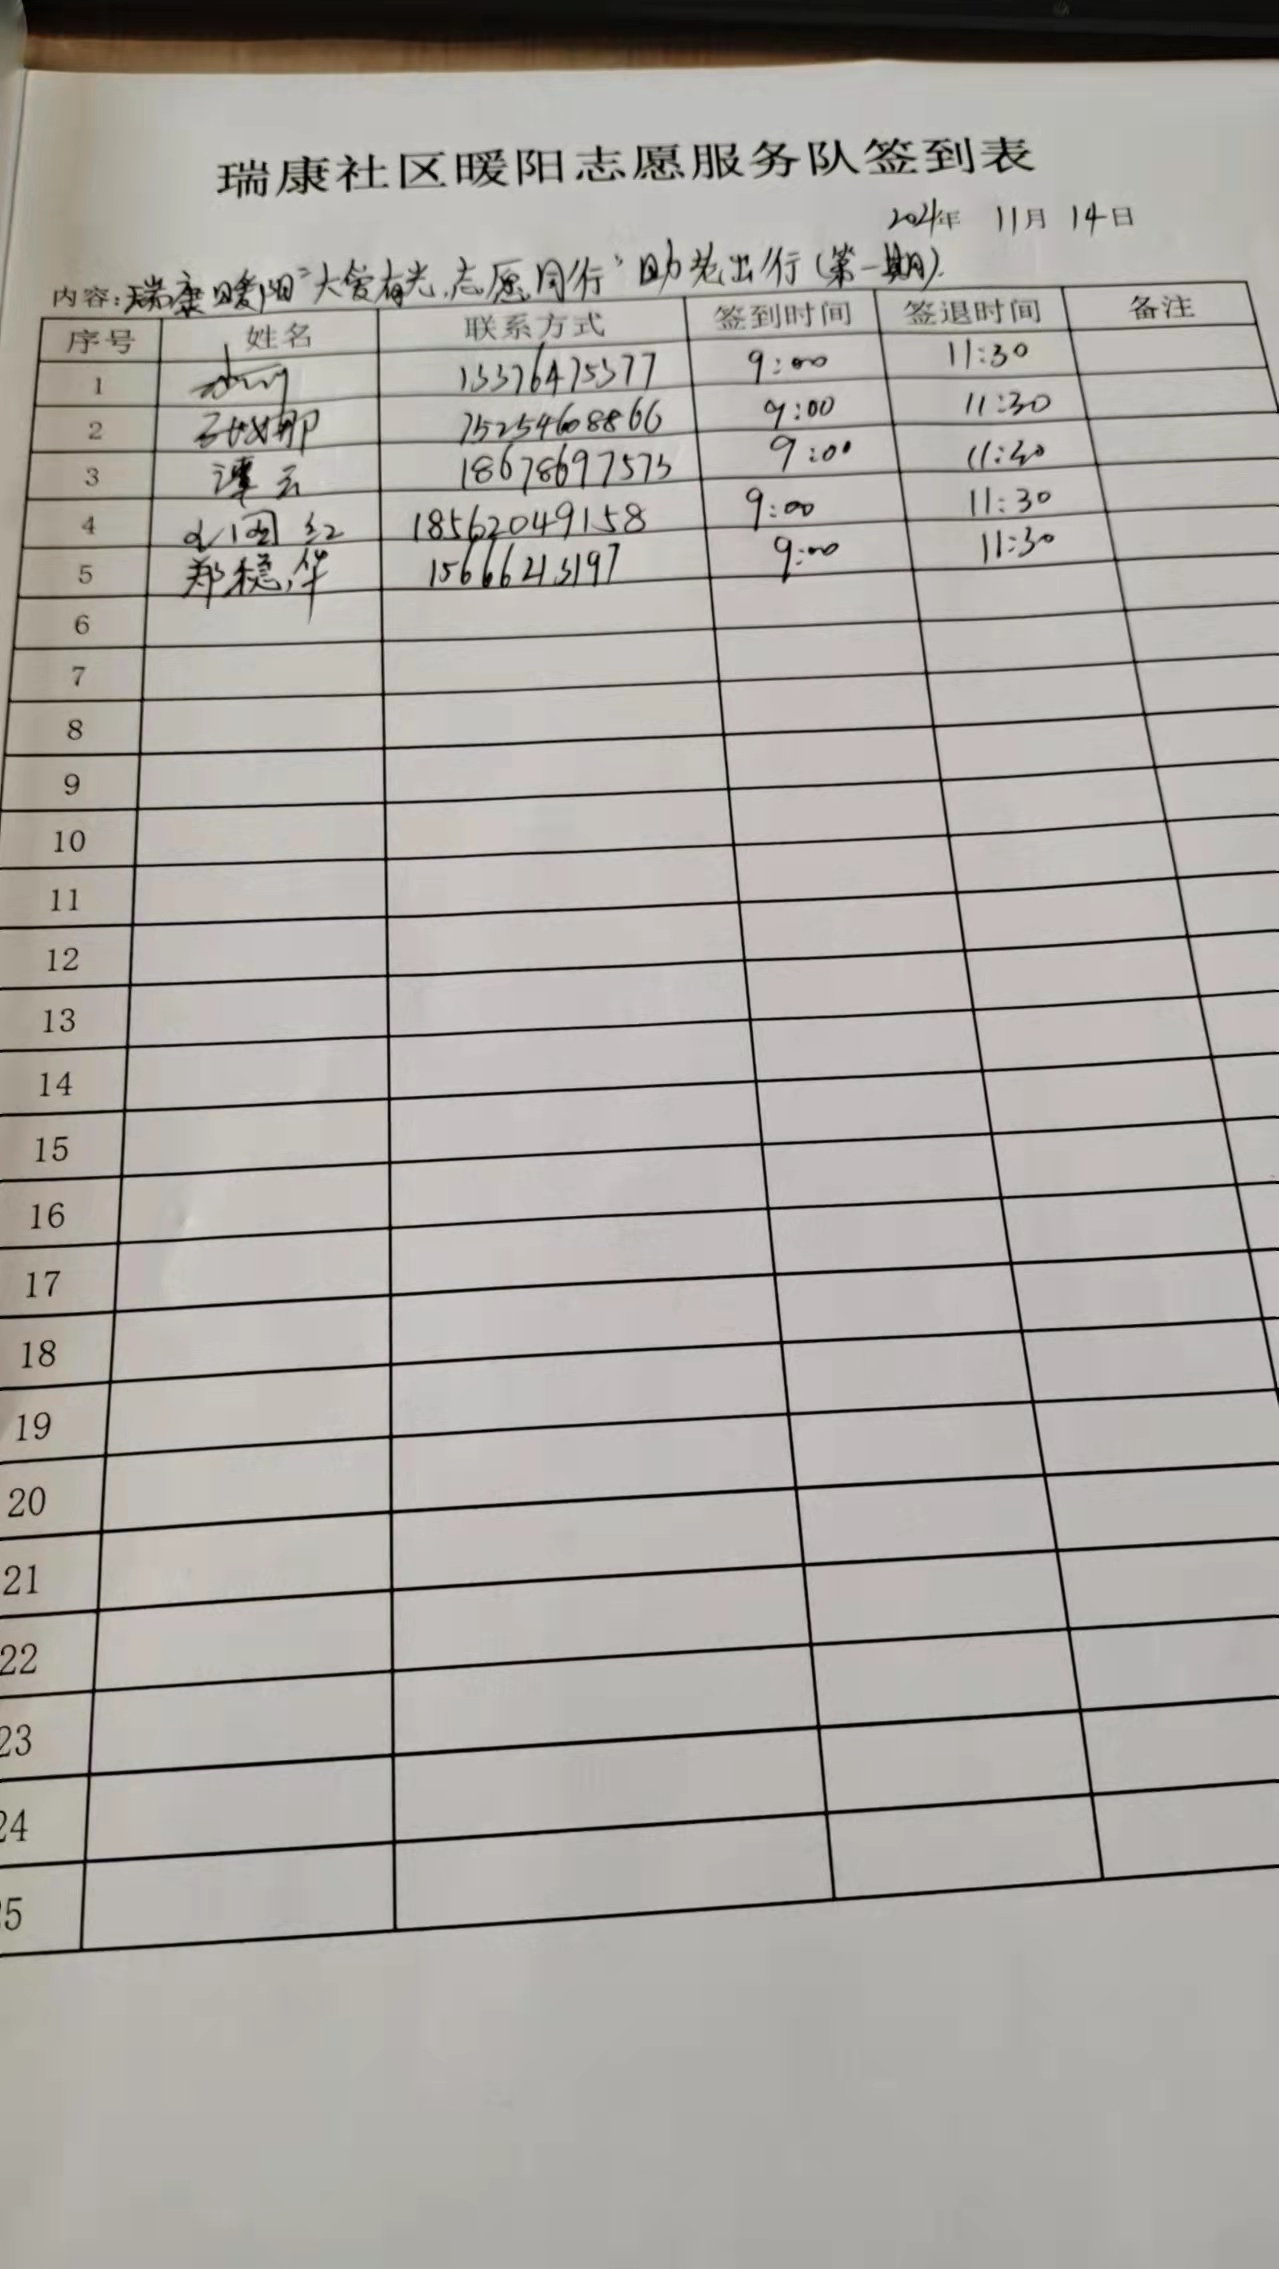 瑞康社区暖阳志愿服务队签到表
年 11月 14日
内容:瑞康暖阳"大爱有光,志愿同行"助老出行(第一期).
序号 姓名 联系方式 签到时间 签退时间 备注
1 13376475377 9:00 11:30
2 15254608866 9:00 11:30
3 谭云 18678697573 9:00 11:30
4 红 18562049158 9:00 11:30
5 郑稳华 15666213197 9:00 11:30
6
7
8
9
10
11
12
13
14
15
16
17
18
19
20
21
22
23
24
25